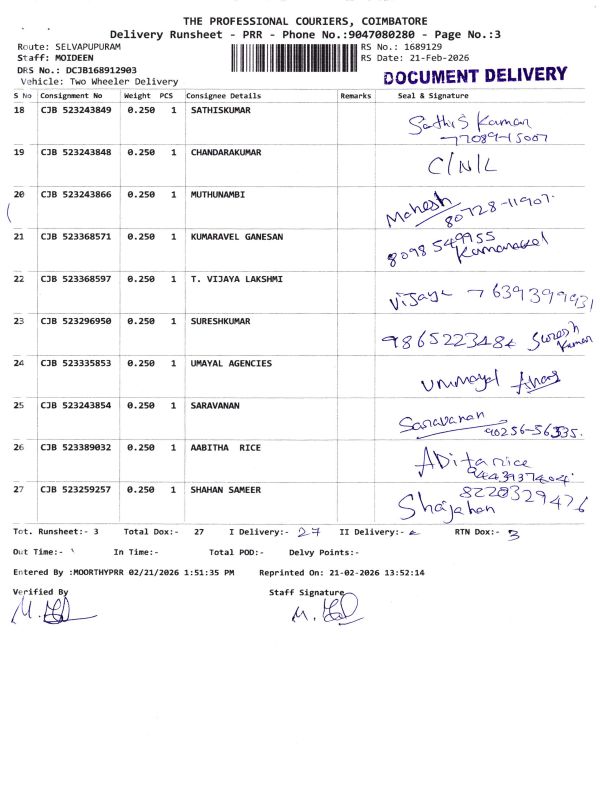 THE PROFESSIONAL COURIERS, COIMBATORE
Delivery Runsheet - PRR - Phone No.:9047080280 - Page No.:3
Route: SELVAPUPURAM RS No.: 1689129
Staff: MOIDEEN RS Date: 21-Feb-2026
DRS No.: DCJB168912903 DOCUMENT DELIVERY
Vehicle: Two Wheeler Delivery
S No Consignment No Weight PCS Consignee Details Remarks Seal & Signature
18 CJB 523243849 0.250 1 SATHISKUMAR Sathis Kumar
77089-15007
19 CJB 523243848 0.250 1 CHANDARAKUMAR C/N/L
20 CJB 523243866 0.250 1 MUTHUNAMBI Mahesh
80728-11907.
21 CJB 523368571 0.250 1 KUMARAVEL GANESAN 8098549955
Kumaravel
22 CJB 523368597 0.250 1 T. VIJAYA LAKSHMI Vijaya 7639399931
23 CJB 523296950 0.250 1 SURESHKUMAR 9865223484 Suresh Kumar
24 CJB 523335853 0.250 1 UMAYAL AGENCIES Ummayal
25 CJB 523243854 0.250 1 SARAVANAN Saravanan
90256-56335.
26 CJB 523389032 0.250 1 AABITHA RICE ABita rice
9443937404
27 CJB 523259257 0.250 1 SHAHAN SAMEER 8220329476
Shajahan
Tot. Runsheet:- 3 Total Dox:- 27 I Delivery:- 27 II Delivery:- RTN Dox:- 3
Out Time:- In Time:- Total POD:- Delvy Points:-
Entered By :MOORTHYPRR 02/21/2026 1:51:35 PM Reprinted On: 21-02-2026 13:52:14
Verified By Staff Signature